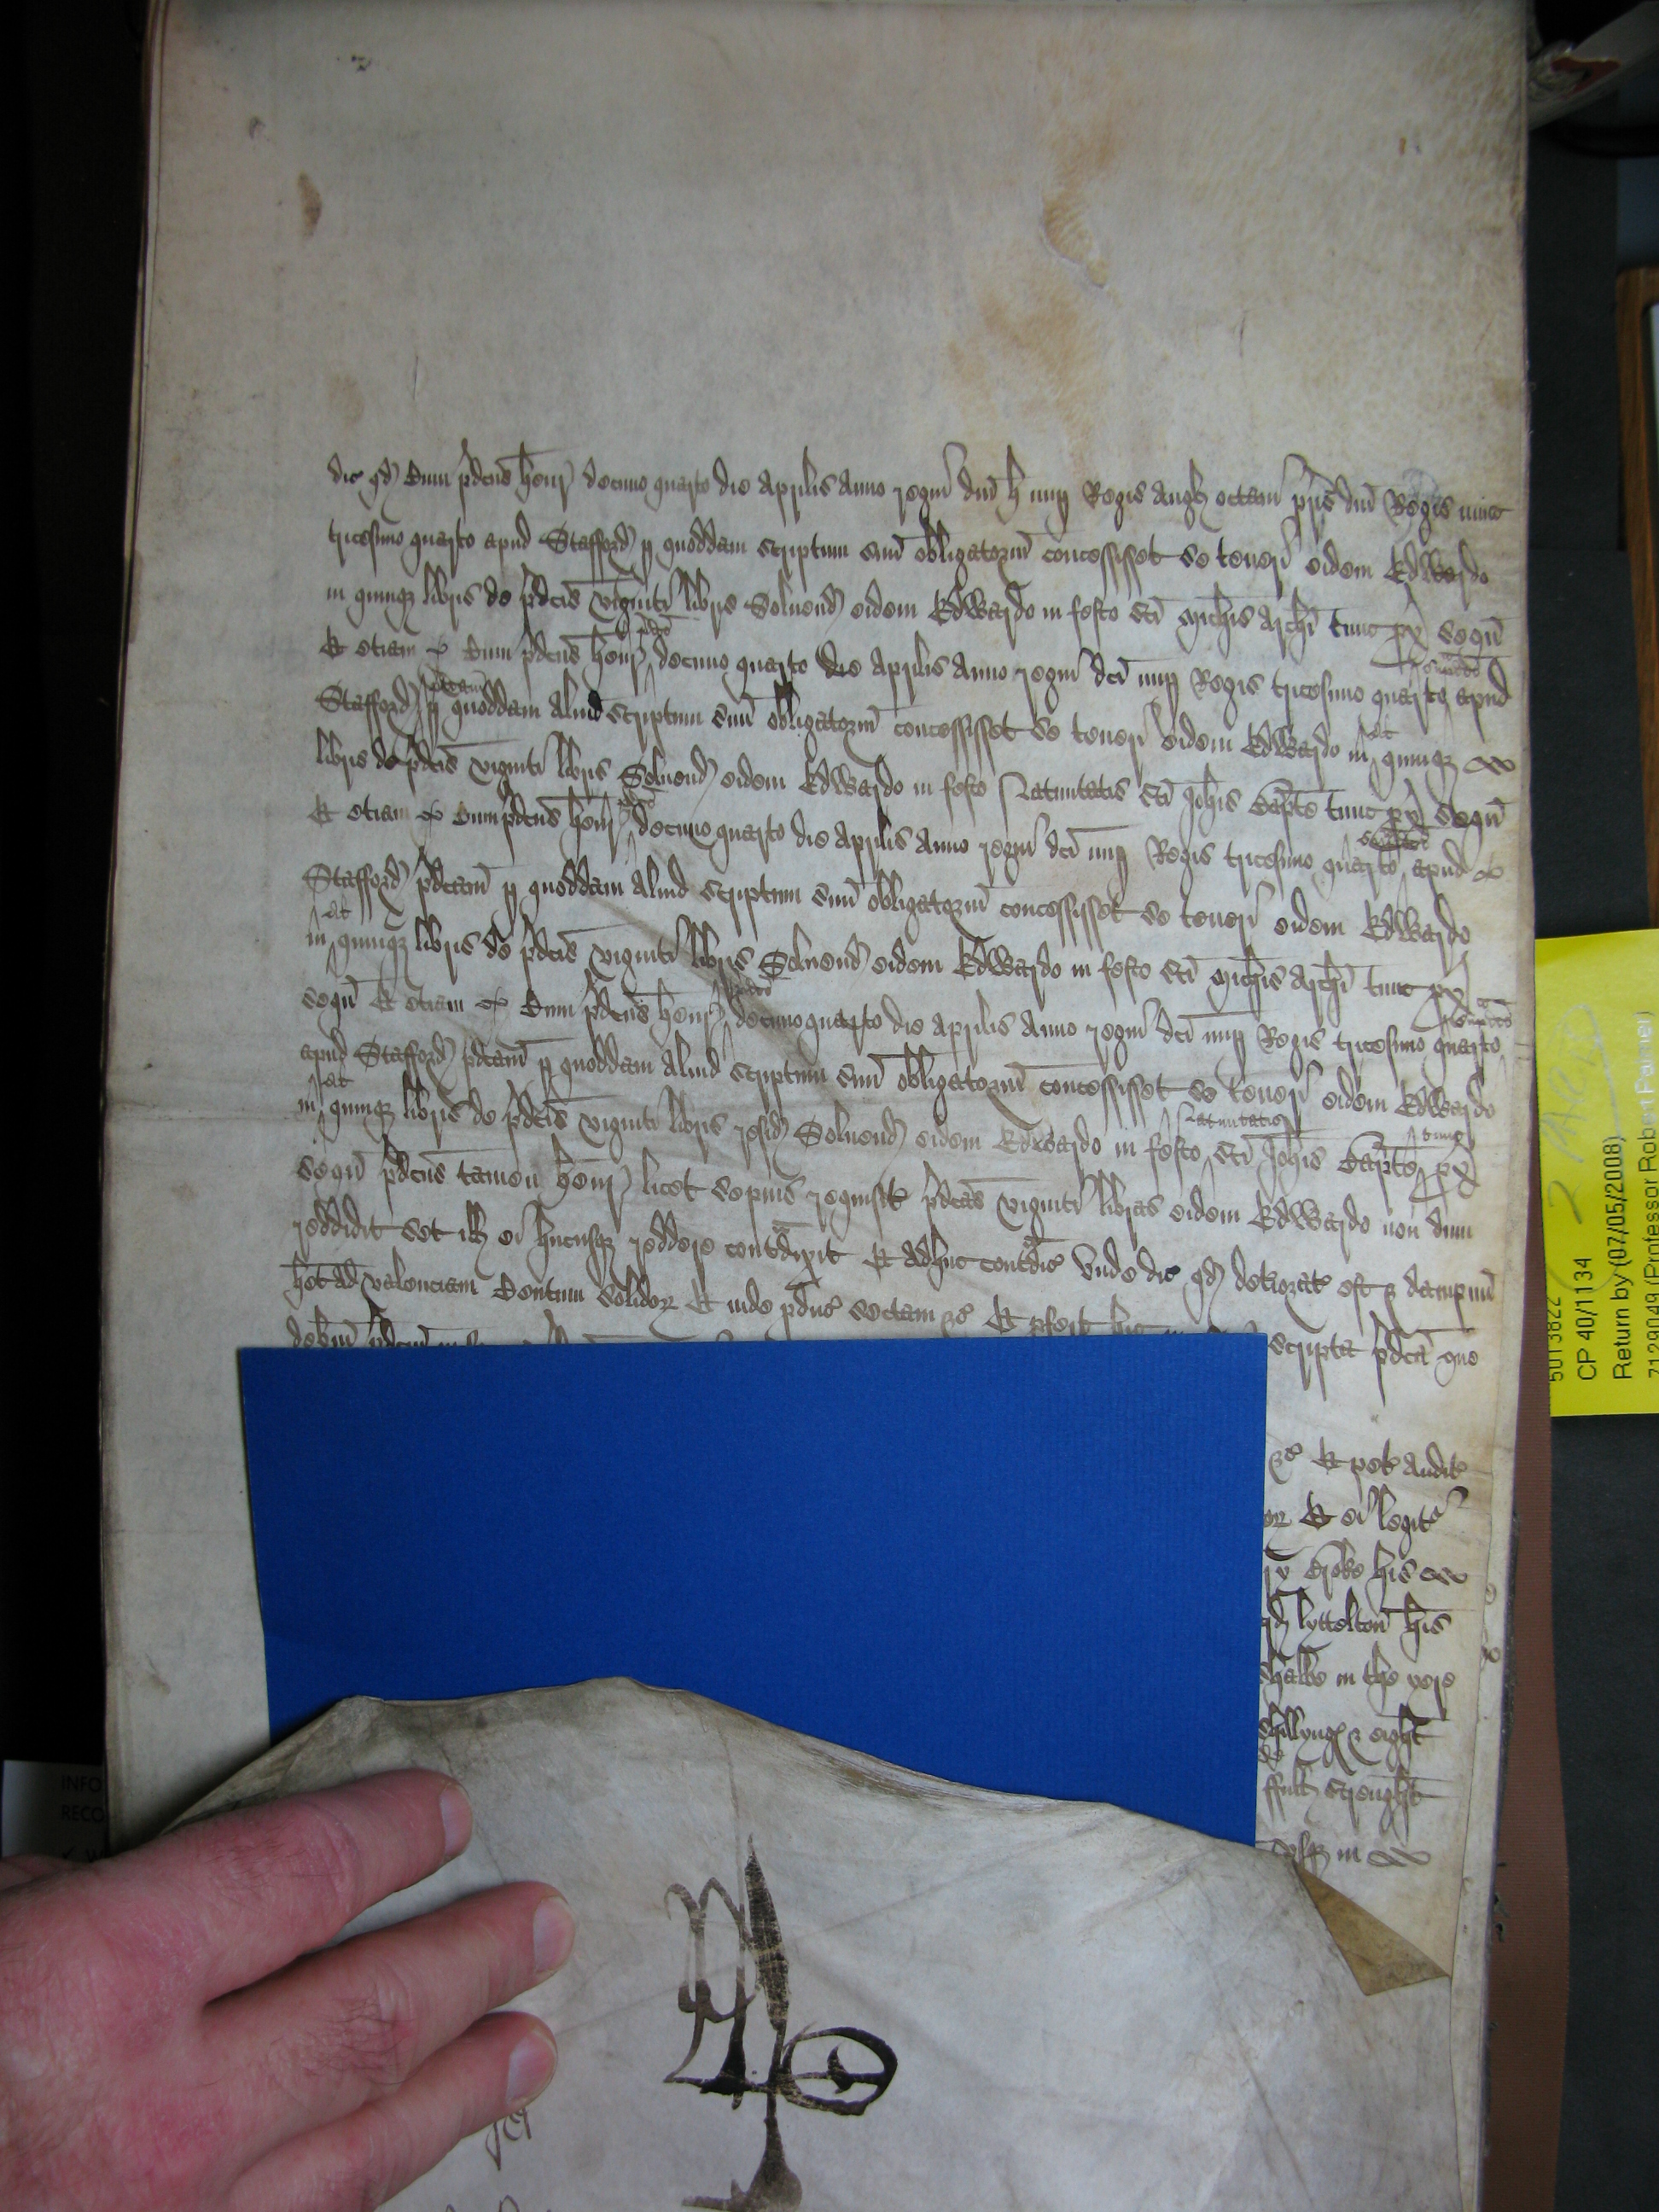 dic qd Cum pdcus henr decimo quarto die Aprilis Anno regni dni h nup Regis Angl octavi pris dni Regis nunc
tricesimo quarto apud Stafford p quoddam scriptum suu obligatoriu concessisset se teneri eidem Edwardo
in quinqz libris de pdcis viginti libris Solvend eidem Edwardo in festo sci Michis Archi tunc px sequn
Et etiam Cum pdcus henr decimo quarto die Aprilis Anno regni dci nup Regis tricesimo quarto apud
Stafford pdcam p quoddam aliud scriptum suu obligatoriu concessisset se teneri eidem Edwardo in al quinqz
libris de pdcis viginti libris Solvend eidem Edwardo in festo Nativitatis sci Johis Bapte tunc px sequn
Et etiam cum pdcus henr decimo quarto die Aprilis Anno regni dci nup Regis tricesimo quarto apud
Stafford pdcam p quoddam aliud scriptum suu obligatoriu concessisset se teneri eidem Edwardo
in al quinqz libris de pdcis viginti libris Solvend eidem Edwardo in festo sci Michis Archi tunc px
sequn Et etiam Cum pdcus henr decimo quarto die Aprilis Anno regni dci nup Regis tricesimo quarto
apud Stafford pdcam p quoddam aliud scriptum suu obligatoriu concessisset se teneri eidem Edwardo
in al quinqz libris de pdcis viginti libris resid Solvend eidem Edwardo in festo Nativitatis sci Johis Bapte tunc px
sequn pdcus tamen henr licet sepius requisit pdcas viginti libras eidem Edwardo non dum
reddidit set ill ei hucusqz reddere contradixit Et adhuc contradic Unde dic qd deteriorat est &
het ad valenciam Centum solidor Et inde pduc sectam &c Et pfert hic scripta pdca que
debm pdcm
&c Et pet Audit
Et ei legit
his
lyttelton his
shalbe in the yere
shillyngs & eight
full strenght
in
5013822
CP 40/1134
Return by (07/05/2008)
7129049 (Professor Robert Palmer)
INFO
RECO